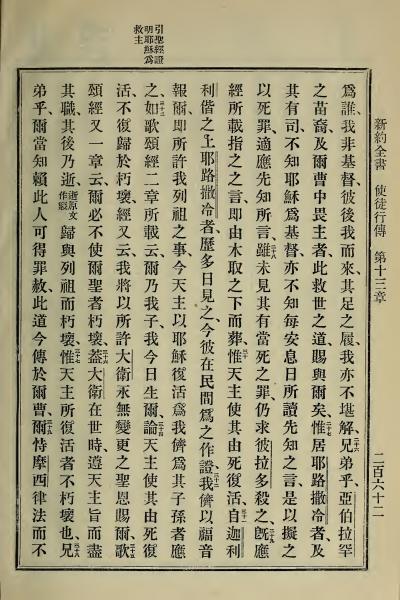 新約全書 使徒行傳 第十三章 二百六十二
引聖經證
明耶穌爲
救主
爲誰、我非基督、彼後我而來、其足之履、我亦不堪解、二十六兄弟乎、亞伯拉罕
之苗裔、及爾曹中畏主者、此救世之道、賜與爾矣、二十七惟居耶路撒冷者、及
其有司、不知耶穌爲基督、亦不知每安息日所讀先知之言、是以擬之
以死罪、適應先知所言、二十八雖未見其有當死之罪、仍求彼拉多殺之、二十九旣應
經所載指之之言、即由木取之下而葬、三十惟天主使其由死復活、三十一自迦利
利偕之上耶路撒冷者、歷多日見之、今彼在民間爲之作證、三十二我儕以福音
報爾、即所許我列祖之事、今天主以耶穌復活、爲我儕爲其子孫者應
之、三十三如歌頌經二章所載云、爾乃我子、我今日生爾、三十四論天主使其由死復
活、不復歸於朽壞、經又云、我將以所許大衛永無變更之聖恩賜爾、三十五歌
頌經又一章云、爾必不使爾聖者朽壞、三十六蓋大衛在世時、遵天主旨而盡
其職、其後乃逝、逝原文作寢歸與列祖而朽壞、三十七惟天主所復活者不朽壞也、三十八兄
弟乎、爾當知賴此人可得罪赦、此道今傳於爾曹、三十九爾恃摩西律法而不